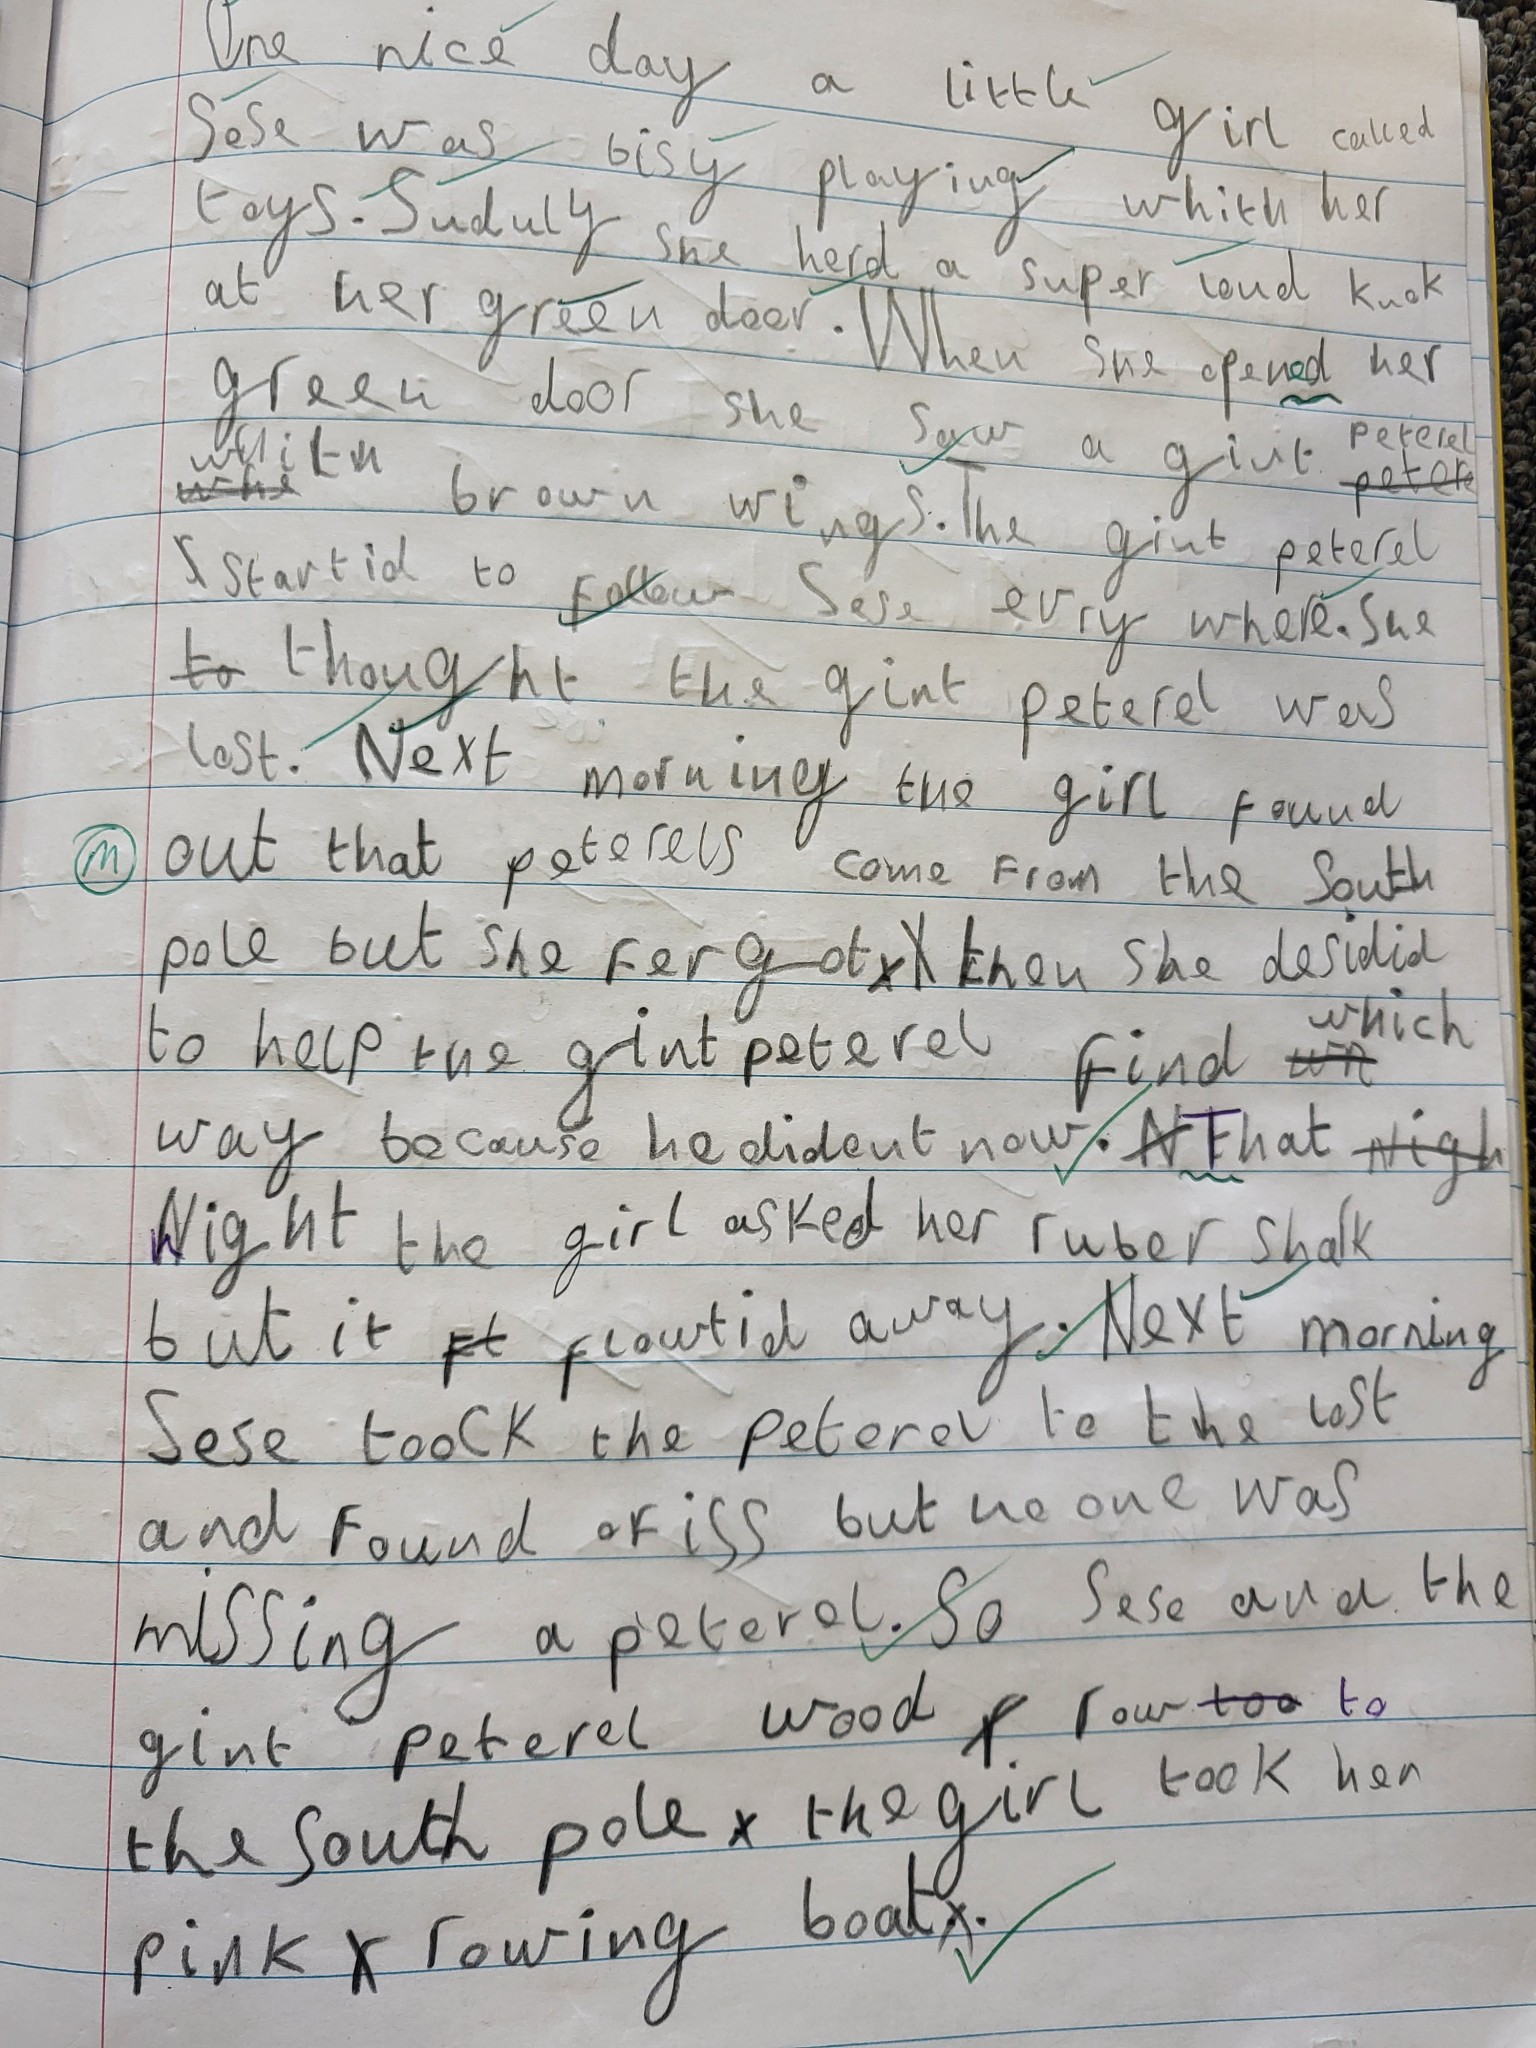 One nice day a little girl called
Sese was bisy playing whith her
toys. Suduly she herd a super loud knok
at her green door. When she opened her
green door she saw a gint peterel
whith brown wings. The gint peterel
startid to follow Sese evry where. She
to thought the gint peterel was
lost. Next morning the girl found
M out that peterels come from the South
pole but she fergot then she desidid
to help the gint peterel find which
way because he dident now. That
Night the girl asked her ruber shalk
but it flowtid away. Next morning
Sese toock the peterel to the lost
and found ofiss but no one was
missing a peterel. So Sese and the
gint peterel wood row too to
the South pole the girl took her
pink rowing boat.